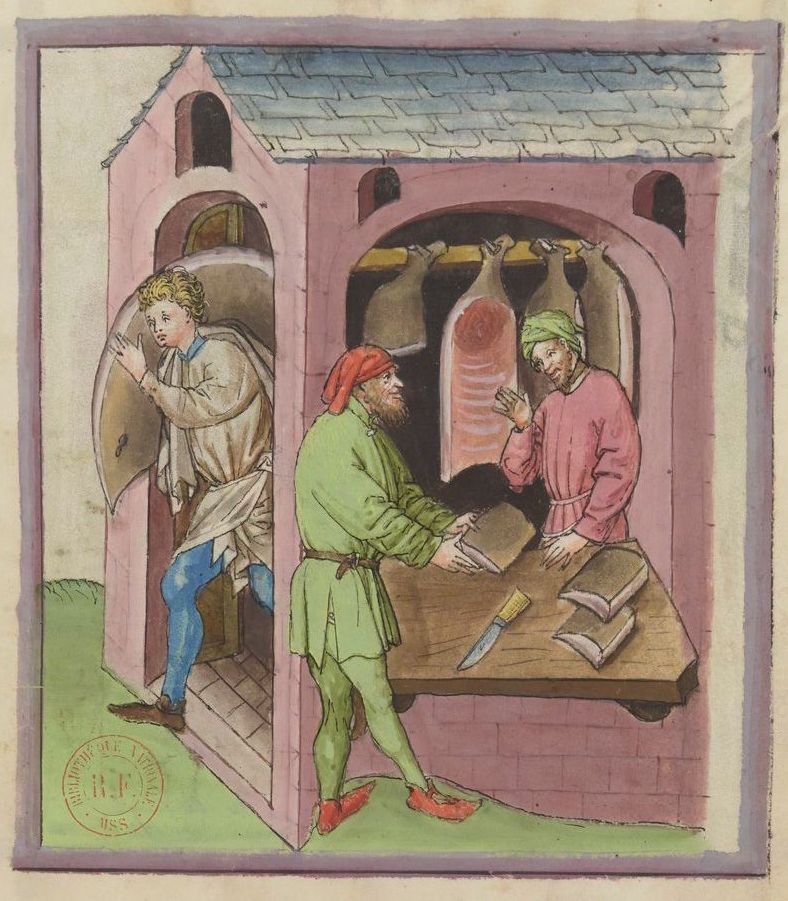 BIBLIOTHEQUE NATIONALE
R.F.
MSS